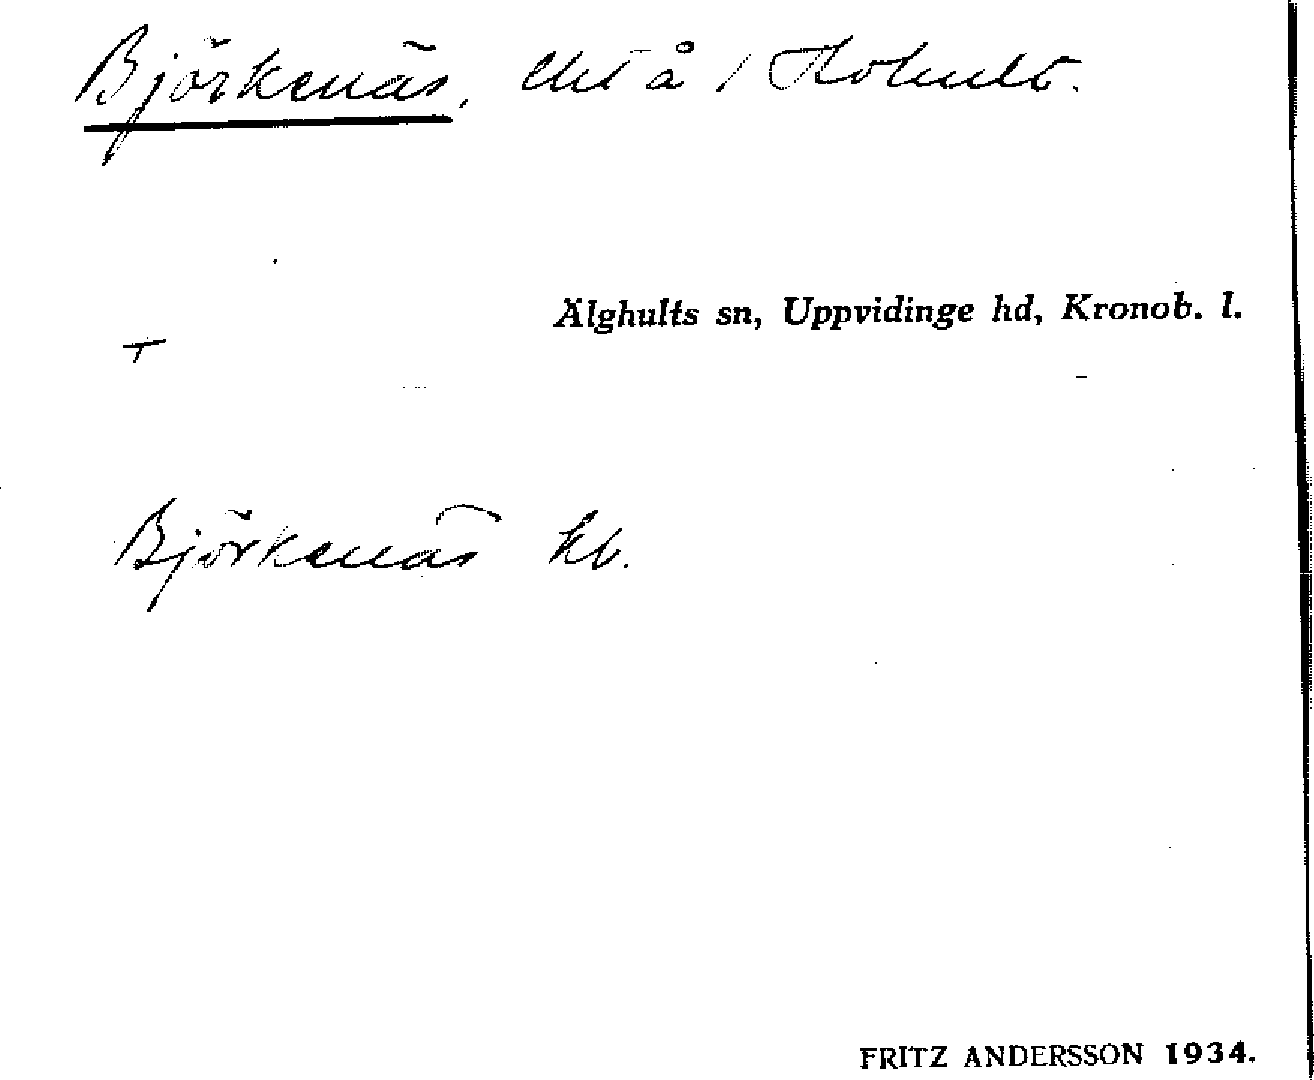 Björkenäs, lht å / Kohult.
Älghults sn, Uppvidinge hd, Kronob. l.
Björkenäs kb.
FRITZ ANDERSSON 1934.